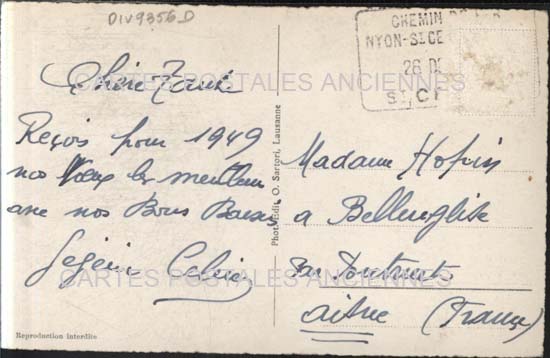 DIV9356_D
CHEMIN
NYON-St CE
26 D
St C
CARTES POSTALES ANCIENNES
Chère Tante
Reçois pour 1949
nos Vœux les meilleurs
avec nos Bons Baisers
Phot. Edit. O. Sartori, Lausanne
Madame
a Bellenglise
par Pontruet
aisne (France)
CARTES POSTALES ANCIENNES
Reproduction interdite